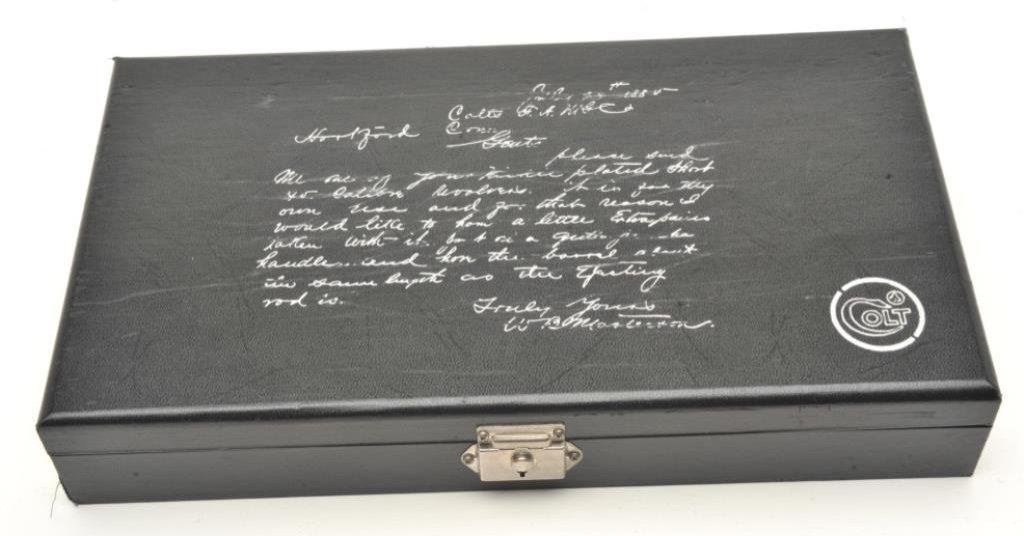 July 24th 1885
Colts F. A. Mfg Co
Hartford Conn
Gents
please send
Me one of your nickle plated short
45. Calibre revolvers. it is for my
own use and for that reason I
would like to have a little Extra pains
taken with it. put on a
handle and have the barrel about
the same length as the Ejecting
rod is.
Truly Yours
W B Masterson.
COLT